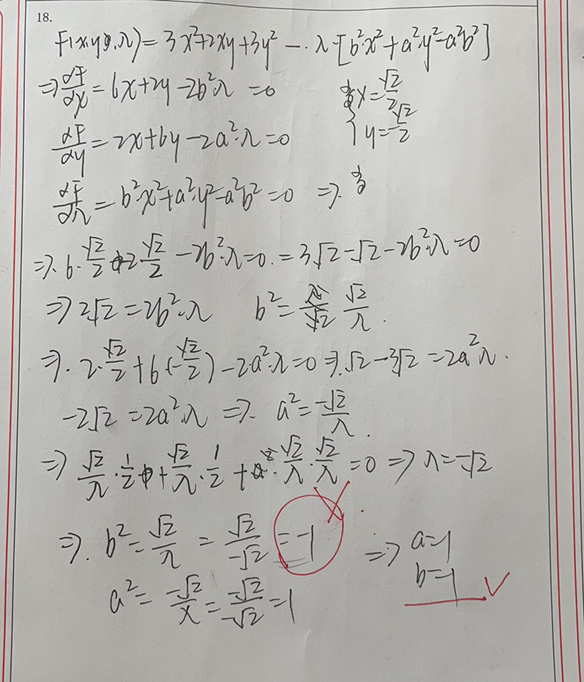 18.
F(x,y,λ) = 3x²+2xy+3y² - λ·[b²x²+a²y²-a²b²]
⇒ dF/dx = 6x+2y-2b²λ = 0 { x = √2/2
dF/dy = 2x+6y-2a²·λ = 0 y = -√2/2
dF/dλ = b²·x²+a²·y²-a²b² = 0 ⇒
⇒ 6·√2/2 - 2·√2/2 - 2b²·λ = 0. = 3√2-√2-2b²·λ = 0
⇒ 2√2 = 2b²·λ b² = √2/λ.
⇒ 2·√2/2 + 6·(-√2/2) - 2a²·λ = 0 ⇒ √2-3√2 = 2a²λ.
-2√2 = 2a²·λ ⇒ a² = -√2/λ.
⇒ √2/λ·1/2 + -√2/λ·1/2 + √2/λ·√2/λ = 0 ⇒ λ = -√2
⇒ b² = √2/λ = √2/-√2 = -1 ⇒ a=1
a² = -√2/λ = -√2/-√2 = 1 b=1